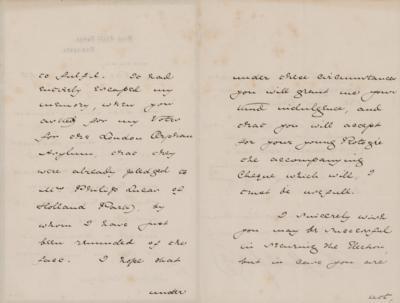 to fulfil. It had
entirely escaped my
memory, when you
asked for my Votes
for the London Orphan
Asylum, that they
were already pledged to
Mrs Philip Lucas of
Holland Park, by
whom I have just
been reminded of the
fact. I hope that
under
under these circumstances
you will grant me your
kind indulgence, and
that you will accept
for your young Protegée
the accompanying
Cheque which will, I
trust be useful.
I sincerely wish
you may be successful
in securing the Election,
but in case you are
not,